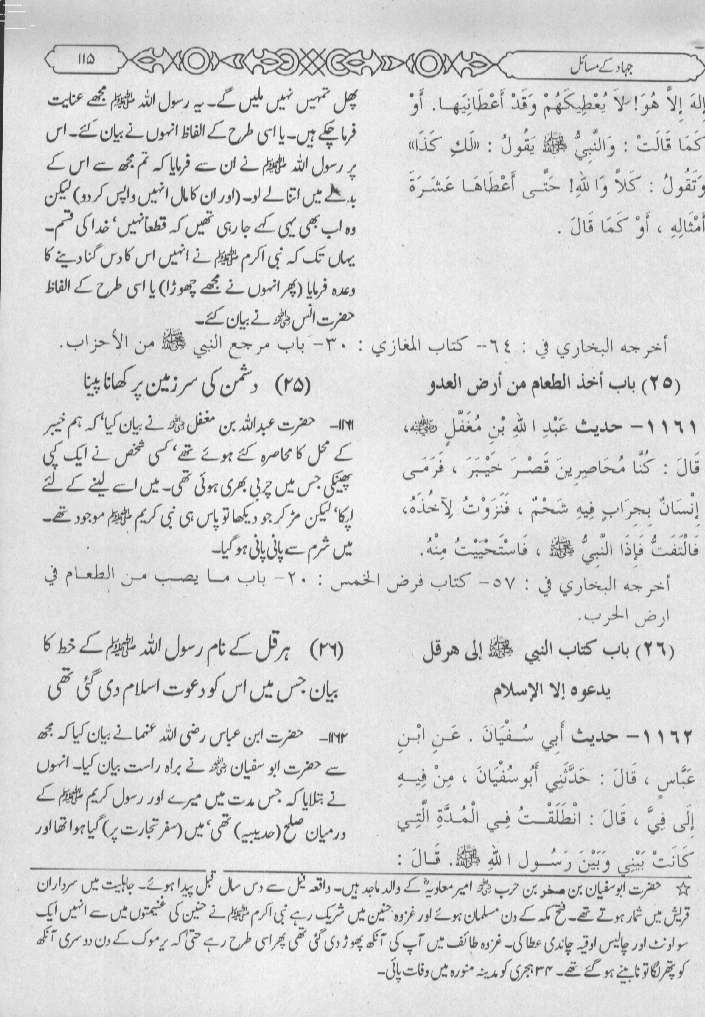 جہاد کے مسائل
۱۱۵
إِلهَ إِلاَّ هُوَ! لاَ يُعْطِيكَهُمْ وَقَدْ أَعْطَانِيهَا. أَوْ
كَمَا قَالَتْ : وَالنَّبِيُّ ﷺ يَقُولُ : «لَكِ كَذَا»
وَتَقُولُ : كَلاَّ وَاللهِ! حَتَّى أَعْطَاهَا عَشَرَةَ
أَمْثَالِهِ ، أَوْ كَمَا قَالَ .
پھل تمہیں نہیں ملیں گے۔ یہ رسول اللہ ﷺ مجھے عنایت
فرما چکے ہیں۔ یا اسی طرح کے الفاظ انہوں نے بیان کئے۔ اس
پر رسول اللہ ﷺ نے ان سے فرمایا کہ تم مجھ سے اس کے
بدلے میں اتنا لے لو۔ (اور ان کا مال انہیں واپس کر دو) لیکن
وہ اب بھی یہی کہے جا رہی تھیں کہ قطعاً نہیں‘ خدا کی قسم۔
یہاں تک کہ نبی اکرم ﷺ نے انہیں اس کا دس گنا دینے کا
وعدہ فرمایا (پھر انہوں نے مجھے چھوڑا) یا اسی طرح کے الفاظ
حضرت انس ؓ نے بیان کئے۔
أخرجه البخاري في : ٦٤- كتاب المغازي : ٣٠- باب مرجع النبي ﷺ من الأحزاب.
(٢٥) باب أخذ الطعام من أرض العدو
(۲۵) دشمن کی سرزمین پر کھانا پینا
١١٦١- حديث عَبْدِ اللهِ بْنِ مُغَفَّلٍ ؓ،
قَالَ : كُنَّا مُحَاصِرِينَ قَصْرَ خَيْبَرَ ، فَرَمَى
إِنْسَانٌ بِجِرَابٍ فِيهِ شَحْمٌ ، فَنَزَوْتُ لِآخُذَهُ،
فَالْتَفَتُّ فَإِذَا النَّبِيُّ ﷺ ، فَاسْتَحْيَيْتُ مِنْهُ.
۱۱۶۱- حضرت عبداللہ بن مغفل ؓ نے بیان کیا‘ کہ ہم خیبر
کے محل کا محاصرہ کئے ہوئے تھے‘ کسی شخص نے ایک کپی
پھینکی جس میں چربی بھری ہوئی تھی۔ میں اسے لینے کے لئے
لپکا‘ لیکن مڑ کر جو دیکھا تو پاس ہی نبی کریم ﷺ موجود تھے۔
میں شرم سے پانی پانی ہو گیا۔
أخرجه البخاري في : ٥٧- كتاب فرض الخمس : ٢٠- باب ما يصب من الطعام في
ارض الحرب.
(٢٦) باب كتاب النبي ﷺ إلى هرقل
يدعوه إلا الإسلام
(۲۶) ہرقل کے نام رسول اللہ ﷺ کے خط کا
بیان جس میں اس کو دعوت اسلام دی گئی تھی
١١٦٢- حديث أَبِي سُفْيَانَ . عَنِ ابْنِ
عَبَّاسٍ ، قَالَ : حَدَّثَنِي أَبُو سُفْيَانَ ، مِنْ فِيهِ
إِلَى فِيَّ ، قَالَ : انْطَلَقْتُ فِي الْمُدَّةِ الَّتِي
كَانَتْ بَيْنِي وَبَيْنَ رَسُولِ اللهِ ﷺ. قَالَ :
۱۱۶۲- حضرت ابن عباس رضی اللہ عنہما نے بیان کیا کہ مجھ
سے حضرت ابو سفیان ؓ نے براہ راست بیان کیا۔ انہوں
نے بتلایا کہ جس مدت میں میرے اور رسول کریم ﷺ کے
درمیان صلح (حدیبیہ) تھی‘ میں (سفر تجارت پر) گیا ہوا تھا اور
☆ حضرت ابو سفیان بن صخر بن حرب ؓ امیر معاویہ ؓ کے والد ماجد ہیں۔ واقعہ فیل سے دس سال قبل پیدا ہوئے۔ جاہلیت میں سرداران
قریش میں شمار ہوتے تھے۔ فتح مکہ کے دن مسلمان ہوئے اور غزوہ حنین میں شریک رہے نبی اکرم ﷺ نے حنین کی غنیمتوں میں سے انہیں ایک
سو اونٹ اور چالیس اوقیہ چاندی عطا کی۔ غزوہ طائف میں آپ کی آنکھ پھوڑ دی گئی تھی پھر اسی طرح رہے حتی کہ یرموک کے دن دوسری آنکھ
کو پتھر لگا تو نابینے ہو گئے تھے۔ ۳۴ ہجری کو مدینہ منورہ میں وفات پائی۔